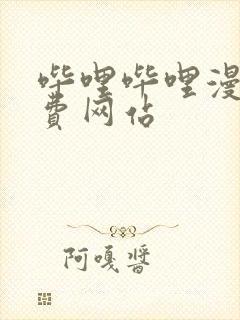 哔哩哔哩漫
费网站
阿嘎酱